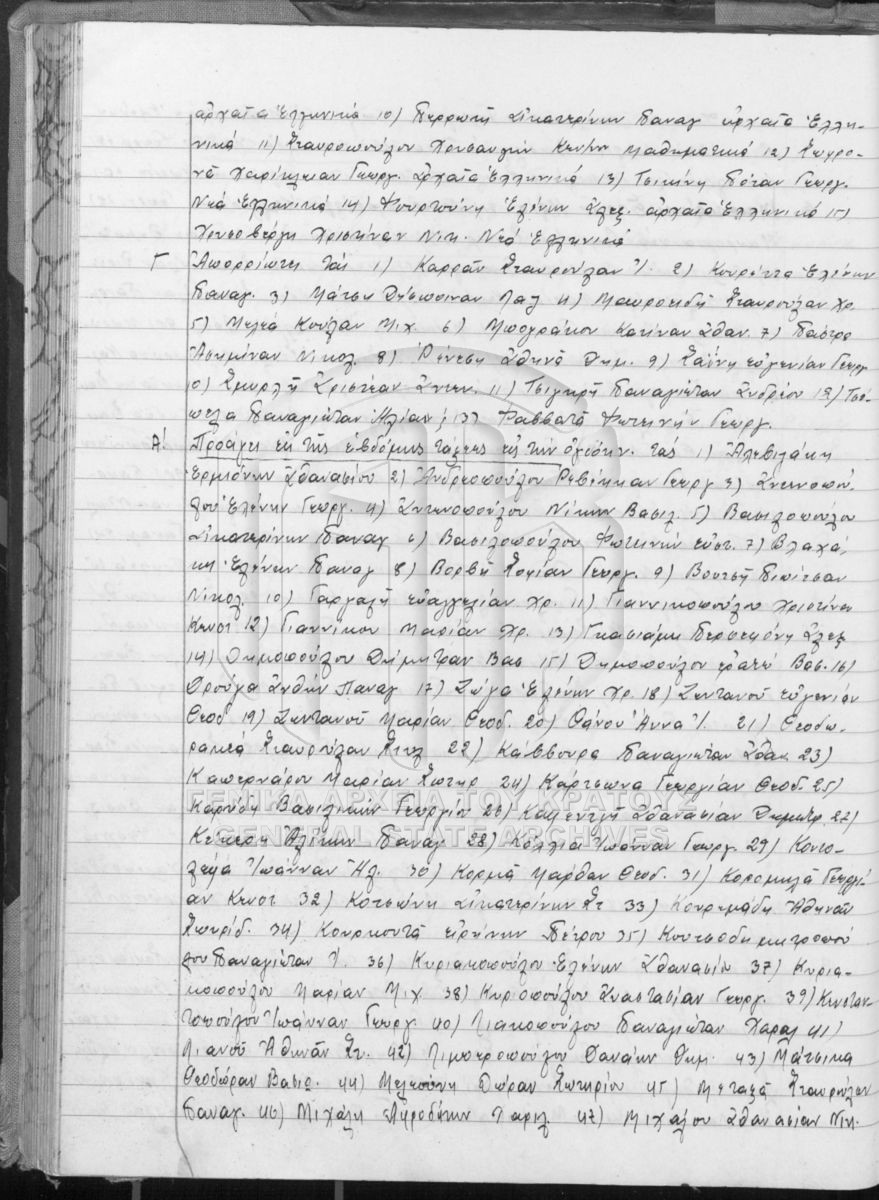 ἀρχαῖα Ἑλληνικά 10) Περρωτῆ Αἰκατερίνην Παναγ ἀρχαῖα Ἑλλη-
νικά 11) Σταυροπούλου Χρυσαυγὴν Κων/ου Μαθηματικά 12) Σωφρο-
νᾶ Χαρίκλειαν Γεωργ. Ἀρχαῖα Ἑλληνικά 13) Τσικίνη Πόταν Γεωργ.
Νέα Ἑλληνικά 14) Φουρτούνη Ἑλένην Ἀλεξ. ἀρχαῖα Ἑλληνικά 15)
Χρυσοβέργη Χριστίναν Νικ. Νέα Ἑλληνικά
Γ Ἀπορρίπτει τάς 1) Καρρᾶν Σταυρούλαν Ἰ. 2) Κουρέντα Ἑλένην
Παναγ. 3) Μάτση Δέσποιναν 4) Μαυροειδῆ Σταυρούλαν Χρ.
5) Μελεᾶ Κούλαν Μιχ. 6) Μπογράκου Κατίναν Ἀθαν. 7) Παστρα
Ἀσημίναν Νικολ. 8) Ρένεση Ἀθηνᾶ Δημ. 9) Σαΐνη Εὐγενίαν Γεωργ
10) Σμυρλῆ Ἀριστέαν Ἀντων. 11) Τσιγκρῆ Παναγιώταν Ἀνδρέου 12) Τσό-
πελα Παναγιώταν Ἠλίαν; 13) Φαββατᾶ Φωτεινὴν Γεωργ.
Α! Προάγει ἐκ τῆς ἑβδόμης τάξεως εἰς τὴν ὀγδόην. τάς 1) Ἀλεβιζάκη
Ἑρμιόνην Ἀθανασίου 2) Ἀνδρεοπούλου Ρεβέκκαν Γεωργ 3) Ἀντωνοπού-
λου Ἑλένην Γεωργ. 4) Ἀντωνοπούλου Νίκην Βασιλ. 5) Βασιλοπούλου
Αἰκατερίνην Παναγ 6) Βασιλοπούλου Φωτεινὴν Εὐστ. 7) Βλαχά-
κη Ἑλένην Παναγ 8) Βορβῆ Σοφίαν Γεωργ. 9) Βουτσῆ Πιπίτσαν
Νικολ. 10) Γαργαλῆ Εὐαγγελίαν Χρ. 11) Γιαννικοπούλου Χριστίναν
Κωνστ 12) Γιαννίκου Μαρίαν Χρ. 13) Γκασιάμη Περσεφόνη Ἀλεξ
14) Δημοπούλου Δήμητραν Βασ 15) Δημοπούλου Ἐρατώ Βασ. 16)
Δρούγα Ἀνθὴν Παναγ 17) Ζώγα Ἑλένην Χρ. 18) Ζωντανοῦ Εὐγενίαν
Θεοδ 19) Ζωντανοῦ Μαρίαν Θεοδ. 20) Θάνου Ἄννα Ἰ. 21) Θεοδω-
ρακέα Σταυρούλαν Στυλ 22) Κάββουρα Παναγιώταν Ἀθαν 23)
Καπερνάρου Μαρίαν Σωτηρ 24) Κάρτσωνα Γεωργίαν Θεοδ. 25)
Καρύδη Βασιλικὴν Γεωργίου 26) Καφεντζῆ Ἀθανασίαν Δημητρ 27)
Κεκερῆ Ἀλίκην Παναγ 28) Κόλλια Ἰωάνναν Γεωργ. 29) Κοντο-
λέφα Ἰωάνναν Ἠλ. 30) Κορμᾶ Μάρθαν Θεοδ. 31) Κορομηλᾶ Γεωργί-
αν Κωνστ 32) Κότσιώνη Αἰκατερίνην Στ 33) Κουρεμάδη Ἀθηνᾶν
Σπυρίδ. 34) Κουρκουτᾶ Εἰρήνην Πέτρου 35) Κουτσοδημητροπού
λου Παναγιώταν Ἰ. 36) Κυριακοπούλου Ἑλένην Ἀθανασίου 37) Κυρια-
κοπούλου Μαρίαν Μιχ 38) Κυριοπούλου Ἀναστασίαν Γεωργ. 39) Κωνσταν-
τοπούλου Ἰωάνναν Γεωργ. 40) Λιακοπούλου Παναγιώταν Χαραλ 41)
Λιανοῦ Ἀθηνᾶν Στ. 42) Λυμπεροπούλου Δανάην Δημ. 43) Μάτσικα
Θεοδώραν Βασιλ. 44) Μελεσούνη Δώραν Σωτηρίου 45) Μεταξᾶ Σταυρούλαν
Παναγ. 46) Μιχάλη Ἀφροδίτην Χαριλ. 47) Μιχαλου Ἀθανασίαν Νικ.
ΓΕΝΙΚΑ ΑΡΧΕΙΑ ΤΟΥ ΚΡΑΤΟΥΣ
GENERAL STATE ARCHIVES